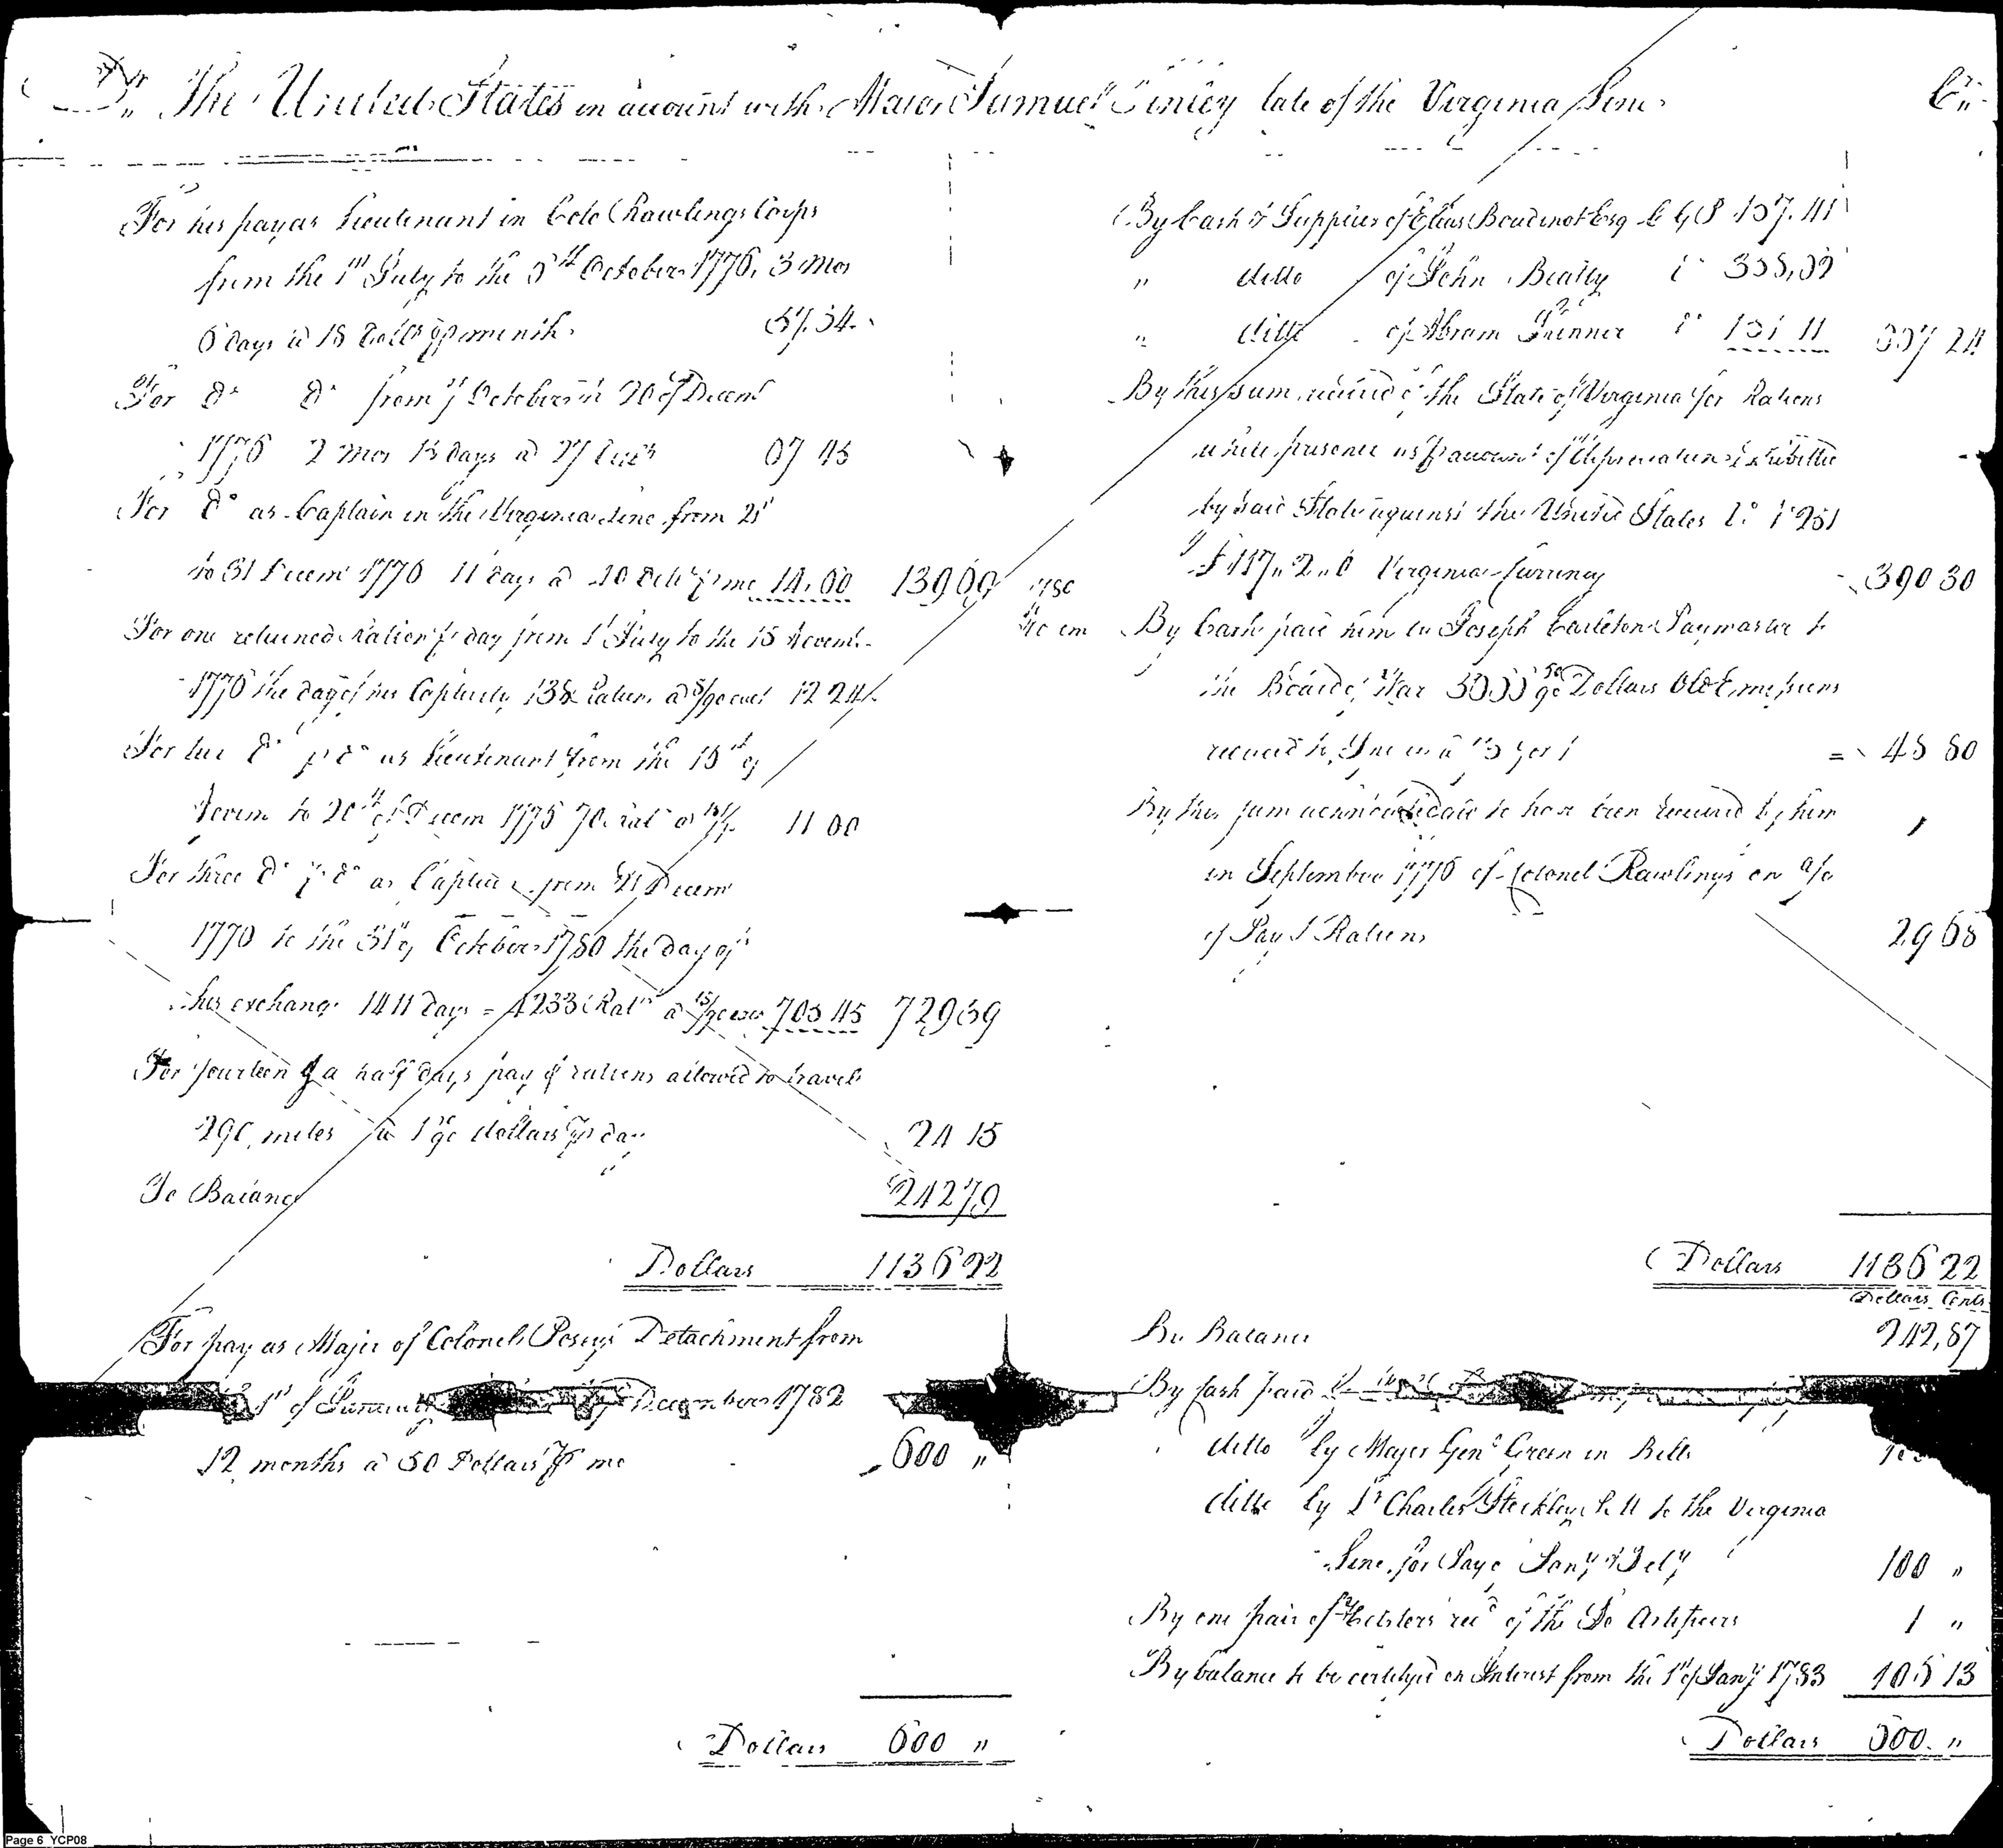 Dr. The United States in account with Major Samuel Finley late of the Virginia Line
Cr.
For his pay as Lieutenant in Colo Rawlings Corps
from the 1st July to the 6th October 1776, 3 Mos
6 days @ 18 Dolls pr month 57.54
For Do Do from 7 October to 20 of Decemr
1776 2 Mos 15 days @ 27 67 45
For Do as Captain in the Virginia Line from 21
to 31 Decemr 1776 11 days @ 40 Dolls pr mo 14.60 139 69
For one retained Ration pr day from 1st July to the 15 Novemr
1776 the day of his Captivity 138 rations @ 8/90 each 12 24
For two Do pr Do as Lieutenant from the 16th of
Novem to 20th of Decem 1776 70 rats @ 11 60
For three Do pr Do as Captain from 21 Decemr
1776 to the 31st of October 1780 the day of
his exchange 1411 days = 4233 Rats @ 15/90 each 705 45 729 39
For fourteen & a half days pay & rations allowed to travel
290 miles @ 1 90 dollars pr day 24 15
To Balance 242 79
Dollars 1136 22
For pay as Major of Colonel Poseys Detachment from
1st of January December 1782
12 months @ 50 Dollars pr mo 600 "
Dollars 600 "
By Cash & Supplies of Elias Boudinot Esq 157.41
" ditto of John Beatty
" ditto of Abram Skinner 667 24
By this sum received of the State of Virginia for Rations
while prisoner as pr account of depreciation exhibited
by said State against the United States
£117 " 2 " 0 Virginia Currency 390 30
By Cash paid him by Joseph Carleton Paymaster to
the Board of War Dollars Old Emissions
48 80
By this sum acknowledged to have been received by him
in September 1776 of Colonel Rawlings on a/c
of Pay & Rations 29 68
Dollars 1136 22
Dollars Cents
By Balance 242,87
By Cash paid
ditto by Major Genl Green in Bills
ditto by Lt Charles Stockley to the Virginia
Line for Pay Jany & Feby 100 "
By one pair of Holsters recd of the Artificers 1 "
By balance to be certifyed on Interest from the 1st of Jany 1783
Dollars 600 "
Page 6 YCP08